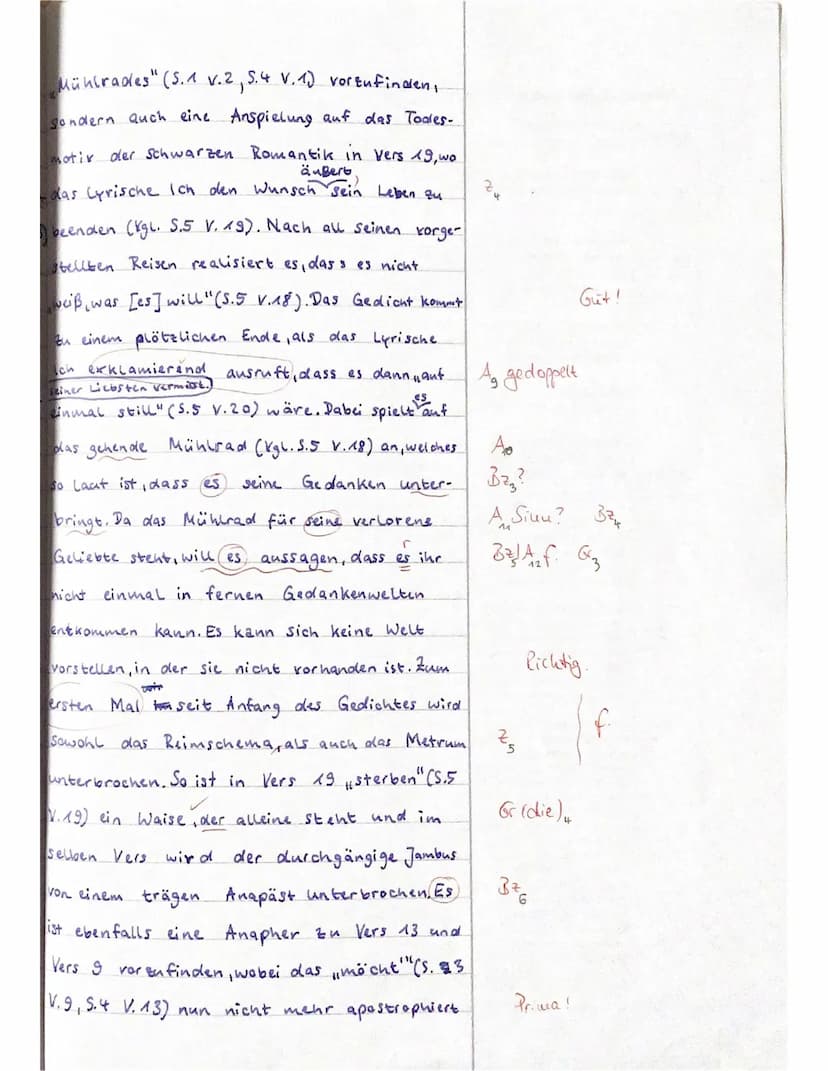 „Mühlrades" (S.1 V.2, S.4 V.1) vorzufinden,
sondern auch eine Anspielung auf das Todes-
motiv der schwarzen Romantik in Vers 19, wo
äußert,
das Lyrische Ich den Wunsch sein Leben zu
Z4
beenden (Vgl. S.5 V.19). Nach all seinen vorge-
stellten Reisen realisiert es, dass es nicht
„weiß, was [es] will" (S.5 V.18). Das Gedicht kommt
Gut!
zu einem plötzlichen Ende, als das Lyrische
Ich exklamierend ausruft, dass es dann „auf
A9 gedoppelt
seiner Liebsten vermisst.
einmal still" (S.5 V.20) wäre. Dabei spielt es auf
das gehende Mühlrad (Vgl. S.5 V.18) an, welches
A10
so laut ist, dass es seine Gedanken unter-
Bz3?
bringt. Da das Mühlrad für seine verlorene
A11 Sinn? Bz4
Geliebte steht, will es aussagen, dass es ihr
Bz5/A12 f. Gr3
nicht einmal in fernen Gedankenwelten
entkommen kann. Es kann sich keine Welt
vorstellen, in der sie nicht vorhanden ist. Zum
Richtig.
ersten Mal seit Anfang des Gedichtes wird
f.
sowohl das Reimschema, als auch das Metrum
Z5
unterbrochen. So ist in Vers 19 „sterben" (S.5
V.19) ein Waise, der alleine steht und im
Gr (die)4
selben Vers wird der durchgängige Jambus
von einem trägen Anapäst unterbrochen. Es
Bz6
ist ebenfalls eine Anapher zu Vers 13 und
Vers 9 vorzufinden, wobei das „möcht'" (S.3
V.9, S.4 V.13) nun nicht mehr apostrophiert
Prima!